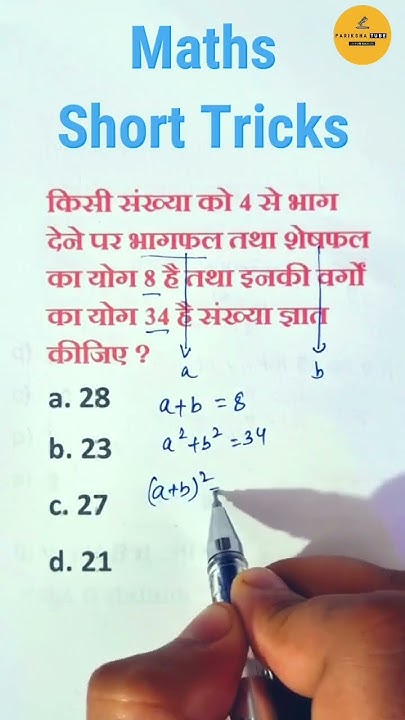 PARIKSHA TUBE
Maths
Short Tricks
किसी संख्या को 4 से भाग
देने पर भागफल तथा शेषफल
का योग 8 है तथा इनकी वर्गों
का योग 34 है संख्या ज्ञात
कीजिए ?
a
b
a. 28
a+b = 8
b. 23
a²+b² = 34
c. 27
(a+b)² =
d. 21